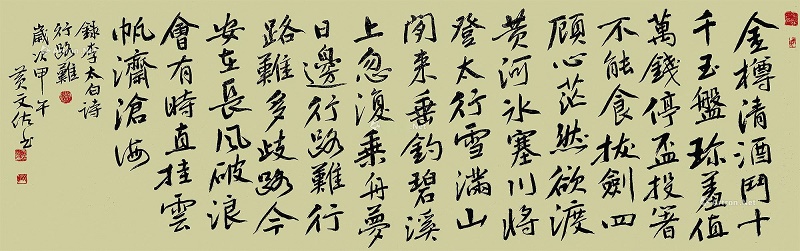 金樽清酒鬥十
千玉盤珎羞值
萬錢停盃投箸
不能食拔劍四
顾心茫然欲渡
黄河冰塞川將
登太行雪滿山
閑来垂釣碧溪
上忽復乘舟夢
日邊行路難行
路難多歧路今
安在長風破浪
會有時直挂雲
帆濟滄海
錄李太白诗
行路難
歲次甲午
黄文佑书